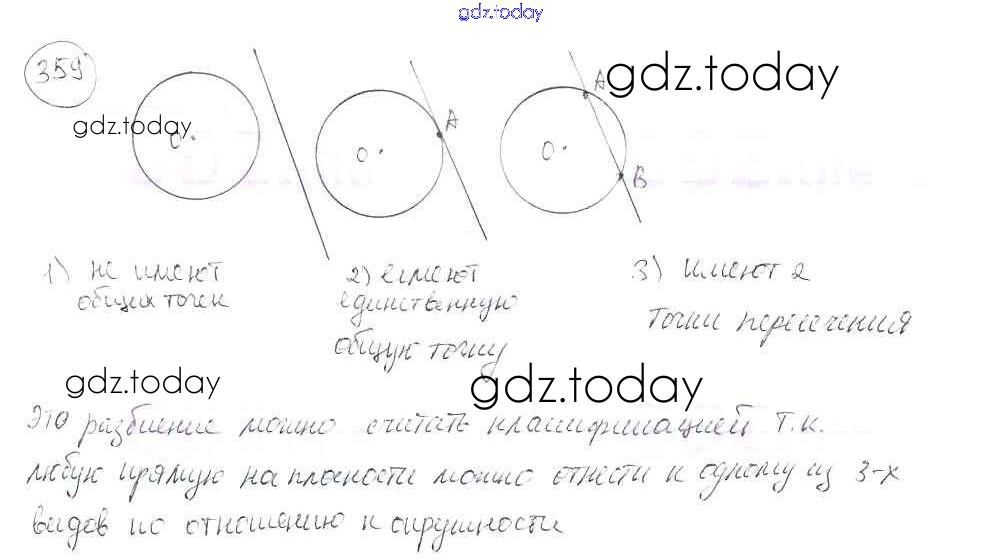 gdz.today
359
gdz.today
A
A
gdz.today
O
O
O
B
1) не имеют
общих точек
2) имеют
единственную
общую точку
3) имеют 2
точки пересечения
gdz.today
gdz.today
Это разбиение можно считать классификацией т.к.
любую прямую на плоскости можно отнести к одному из 3-х
видов по отношению к окружности